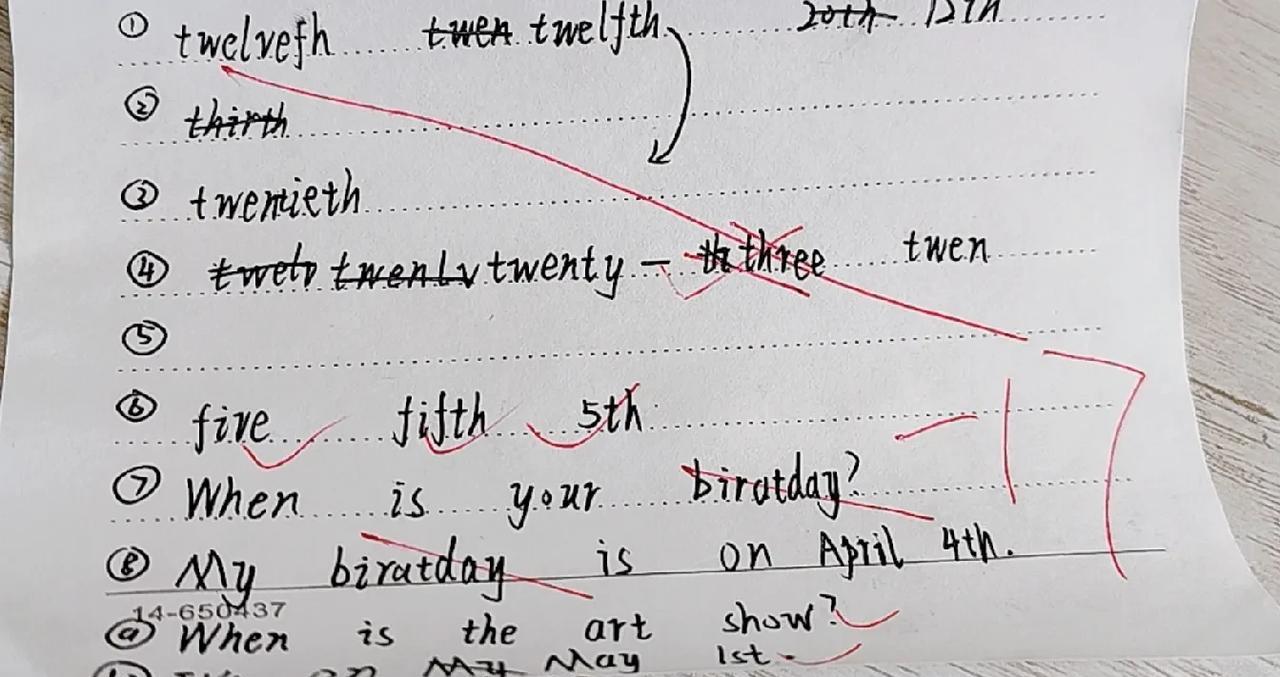 ① twelvefh twen twelfth 20th 12th
② thirth
③ twentieth
④ twelv twenty twenty - th three twen
⑤
⑥ five fifth 5th
⑦ When is your biratday?
⑧ My biratday is on April 4th.
14-650437
⑨ When is the art show?
on My May 1st.
-17